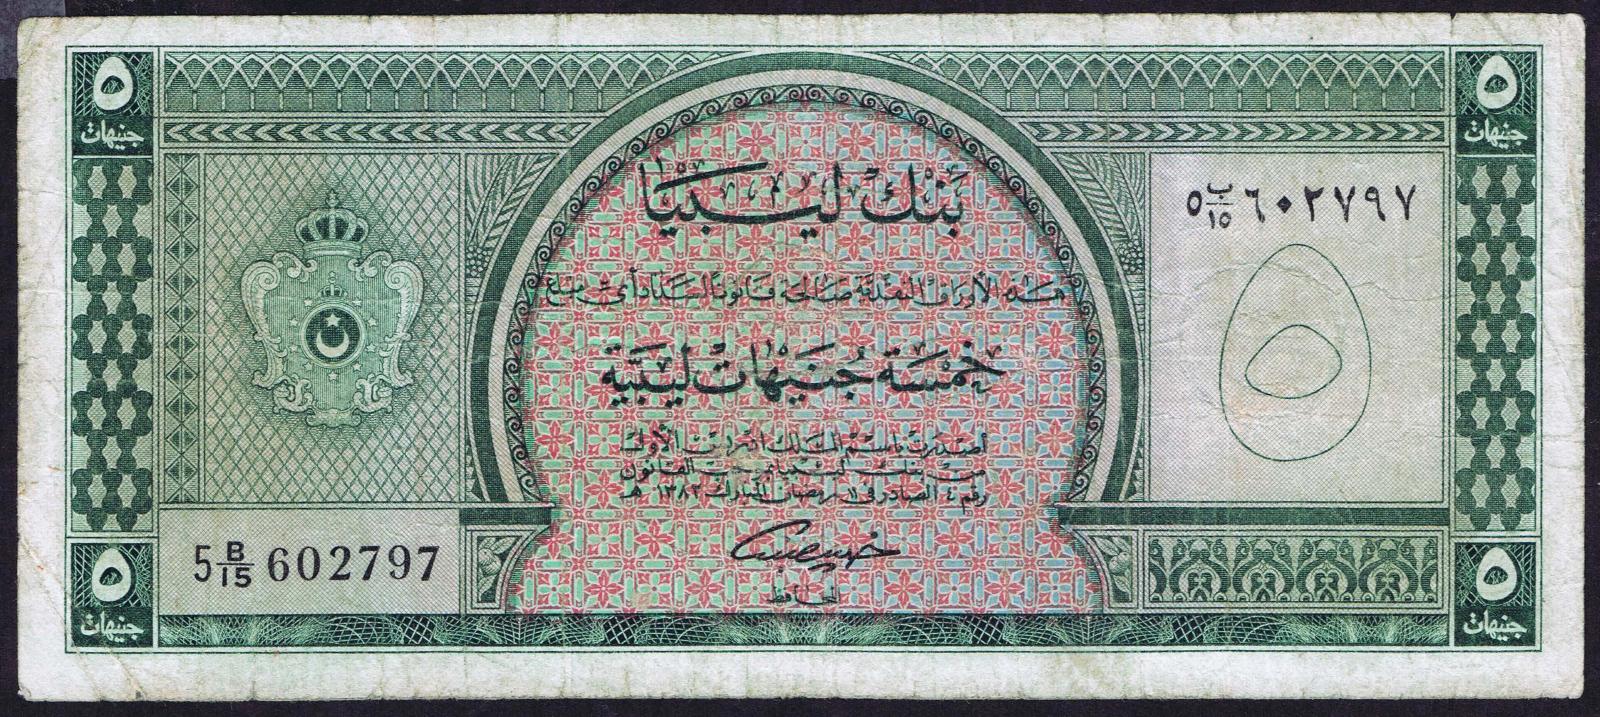 ٥ جنيهات
٥ جنيهات
بنك ليبيا
٥ ب/١٥ ٦٠٢٧٩٧
هذه الأوراق النقدية صالحة قانونا لسداد أي مبلغ
٥
خمسة جنيهات ليبية
أصدرت باسم الملك ادريس الأول
من بنك ليبيا بموجب القانون
رقم ٤ الصادر في ١١ رمضان المبارك ١٣٨٢ هـ
5 B/15 602797
المحافظ
٥ جنيهات
٥ جنيهات